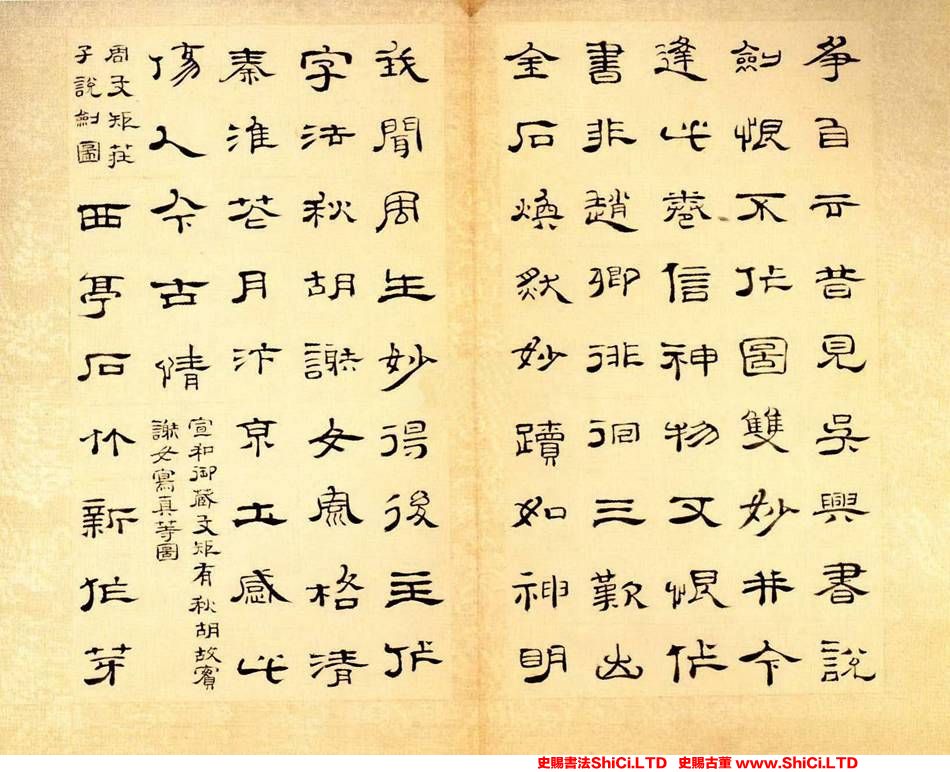 爭自云昔見吳興書說
劍恨不作圖雙妙并今
逢此卷信神物又恨作
書非趙卿徘徊三歎出
金石煥然妙蹟如神明
我聞周生妙得後主作
字法秋胡謝女風格清
秦淮花月汴京土感此
傷人今古情
宣和御藏文矩有秋胡故實
謝女寫真等圖
周文矩莊
子說劍圖
西亭石竹新作芽
史賜書法ShiCi.LTD 史賜古董 www.ShiCi.LTD